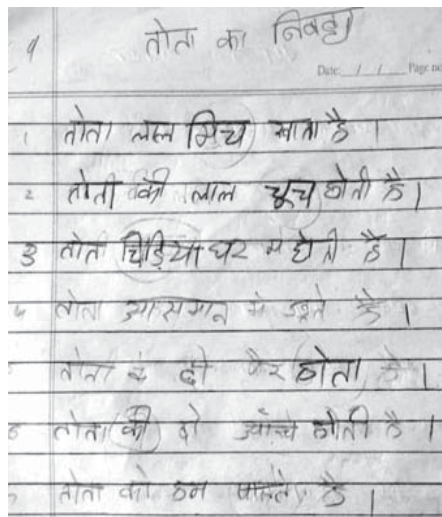 9 तोता का निबध
Date: / / Page no
1 तोता लाल मिच खाता है ।
2 तोती की लाल चूच होती है ।
3 तोता चिड़िया घर मे होती है ।
4 तोता आसमान मे उड़ते है ।
तोता के दो पैर होता है ।
6 तोता की दो आँखे होती है ।
तोता को हम पालते है ।